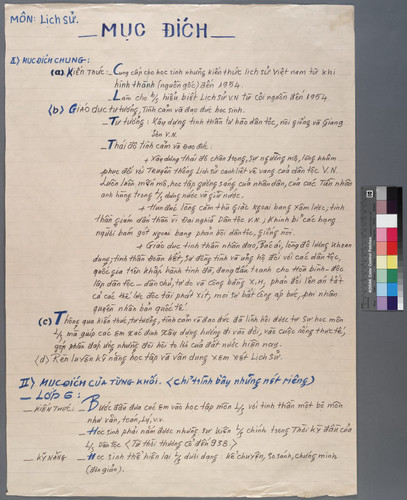 MÔN: Lịch sử.
_ MỤC ĐÍCH _
I) MỤC ĐÍCH CHUNG:
(a) KIẾN THỨC: Cung cấp cho học sinh những kiến thức lịch sử Việt Nam từ khi
hình thành (nguồn gốc) đến 1954.
_ Làm cho h/s hiểu biết Lịch sử V.N từ cội nguồn đến 1954.
(b) GIÁO DỤC tư tưởng, tình cảm và đạo đức học sinh.
_ Tư tưởng: Xây dựng tinh thần tự hào dân tộc, nòi giống và Giang
Sơn V.N.
_ Thái độ tình cảm và Đạo đức:
+ Xây dựng thái độ trân trọng, sự ngưỡng mộ, lòng khâm
phục đối với Truyền thống Lịch sử oanh liệt vẻ vang của dân tộc V.N.
Luôn luôn mến mộ, học tập gương sáng của nhân dân, của các Tiền nhân
anh hùng trong h/s dựng nước và giữ nước.
+ Hun đúc lòng căm thù Giặc ngoại bang xâm lược; tinh
thần giám dấn thân vì Đại nghĩa Dân tộc V.N.; Khinh bỉ các hạng
người bám gót Ngoại bang phản bội dân tộc, giống nòi.
+ Giáo dục tinh thần nhân đạo, Bác ái, lòng độ lượng khoan
dung; tinh thần Đoàn kết, sự đồng tình và ủng hộ đối với các dân tộc,
quốc gia trên khắp hành tinh đã, đang đấu tranh cho Hòa bình - độc
lập dân tộc - dân chủ, tự do và Công bằng X.H, phản đối lên án tất
cả các thế lực độc tài phát xít, mọi sự bất công áp bức, phi nhân
quyền nhân bản quốc tế.
(c) Thông qua kiến thức, tư tưởng, tình cảm và đạo đức đã lĩnh hội được từ sự học môn
L/s mà giúp các em xác định xây dựng hướng đi vào đời, vào cuộc sống thực tế,
góp phần đáp ứng những đòi hỏi to lớn của đất nước hiện nay.
(d) Rèn luyện kỹ năng học tập và vận dụng xem xét Lịch sử.
II) MỤC ĐÍCH CỦA TỪNG KHỐI. (chỉ trình bày những nét riêng)
_ LỚP 6:
_ KIẾN THỨC: _ Bước đầu đưa các em vào học tập môn L/s với tinh thần một bộ môn
như văn, toán, Lý, v.v.
_ Học sinh phải nắm được những sự kiện L/s chính trong Thời kỳ đầu của
L/s dân tộc (Từ thời thượng cổ đến 938.)
_ KỸ NĂNG _ Học sinh thể hiện lại L/s dưới dạng: kể chuyện, so sánh, chứng minh
(đơn giản).